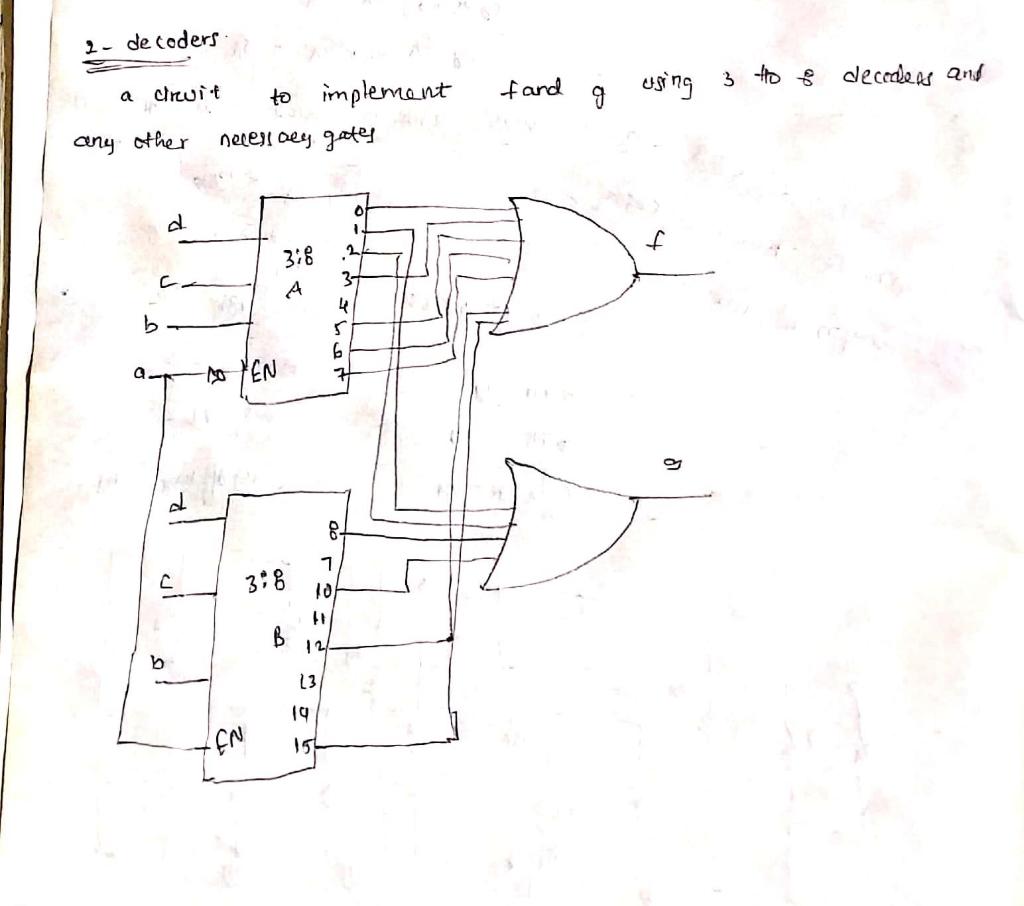 2- decoders.
a circuit to implement f and g using 3 to 8 decoders and
any other necessary gates
d
c
b
a
3:8
A
EN
0
1
2
3
4
5
6
7
f
d
c
b
3:8
B
EN
8
7
10
11
12
13
14
15
g